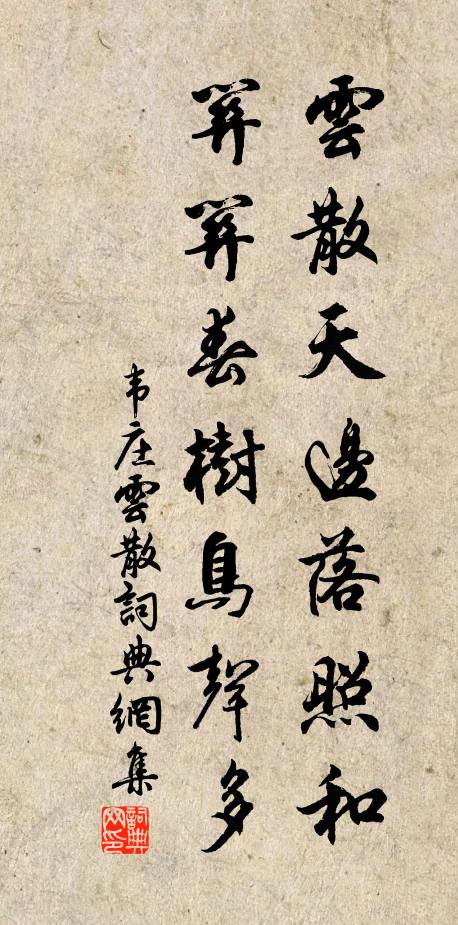 雲散天邊落照和
關關春樹鳥聲多
韦庄雲散詞典網集
詞典网印